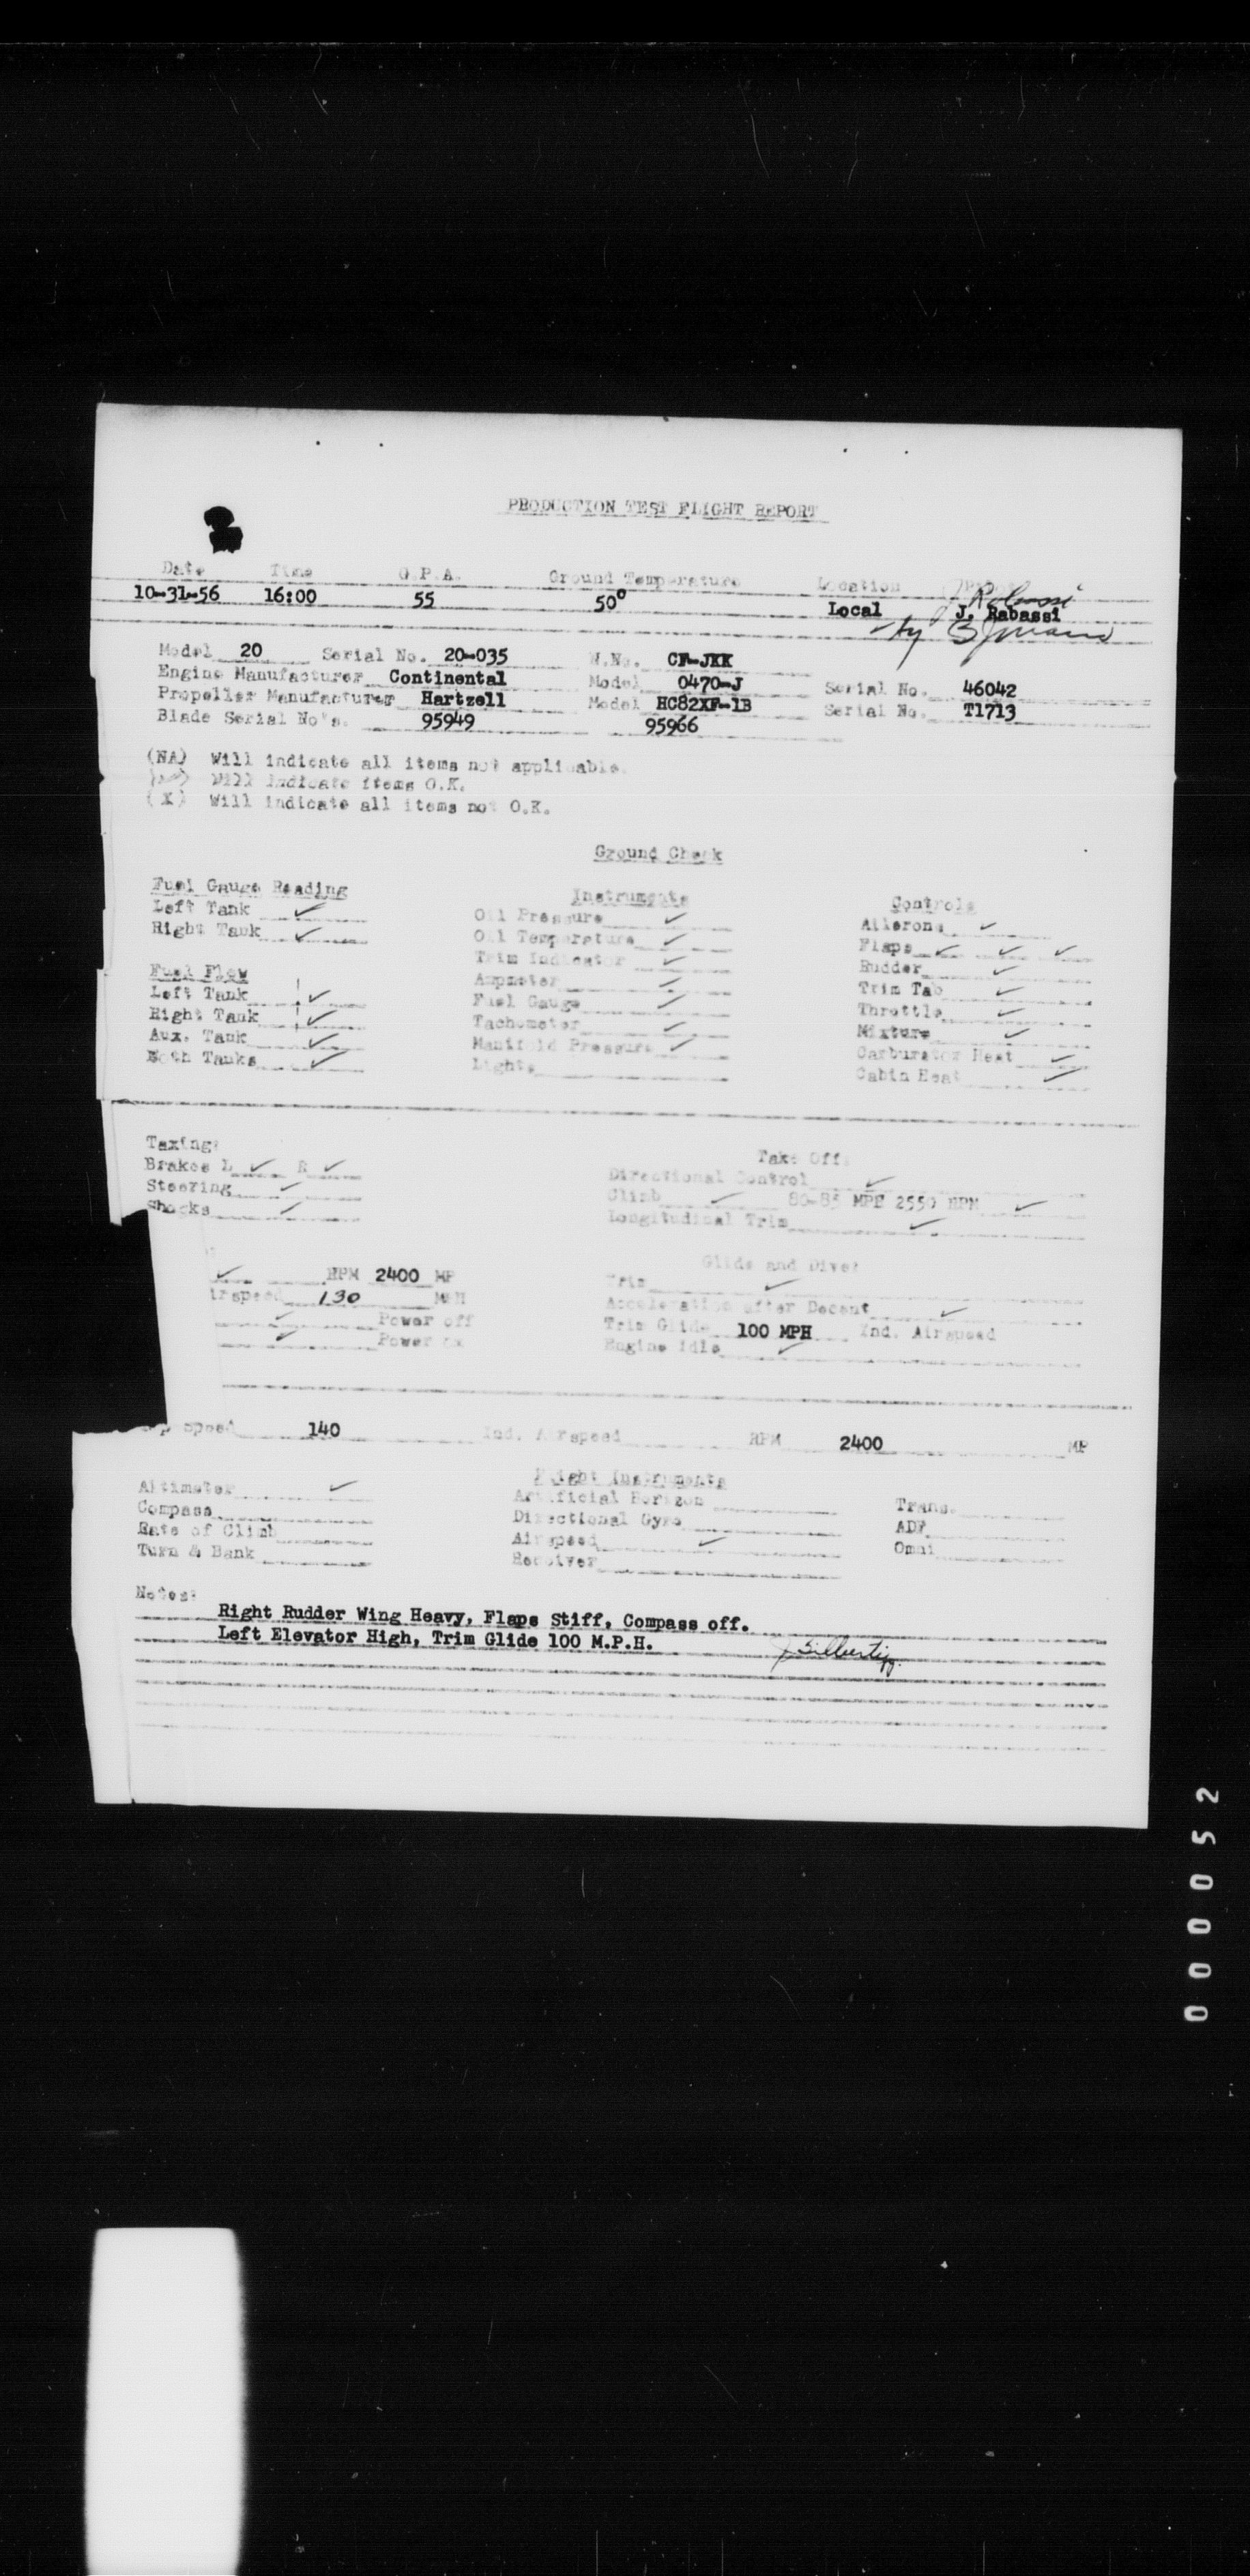 PRODUCTION TEST FLIGHT REPORT
Date Time O.P.A. Ground Temperature Location
10-31-56 16:00 55 50° Local J. Rabassi
by
Model 20 Serial No. 20-035 N.No. CF-JKK
Engine Manufacturer Continental Model O470-J Serial No. 46042
Propeller Manufacturer Hartzell Model HC82XF-1B Serial No. T1713
Blade Serial No's. 95949 95966
(NA) Will indicate all items not applicable.
(✓) Will indicate items O.K.
(X) Will indicate all items not O.K.
Ground Check
Fuel Gauge Reading Instruments Controls
Left Tank ✓ Oil Pressure ✓ Ailerons ✓
Right Tank ✓ Oil Temperature ✓ Flaps ✓ ✓ ✓
Trim Indicator ✓ Rudder ✓
Fuel Flow Ampmeter ✓ Trim Tab ✓
Left Tank ✓ Fuel Gauge ✓ Throttle ✓
Right Tank ✓ Tachometer ✓ Mixture ✓
Aux. Tank ✓ Manifold Pressure ✓ Carburator Heat ✓
Both Tanks ✓ Lights Cabin Heat ✓
Taxing: Take Off:
Brakes L ✓ R ✓ Directional Control ✓
Steering ✓ Climb ✓ 80-85 MPH 2550 RPM ✓
Shocks ✓ Longitudinal Trim ✓
Glide and Dive:
✓ RPM 2400 MP Trim ✓
irspeed 130 MPH Acceleration after Decent ✓
✓ Power off Trim Glide 100 MPH Ind. Airspeed
✓ Power on Engine Idle ✓
speed 140 Ind. Airspeed RPM 2400 MP
Flight Instruments
Altimeter ✓ Artificial Horizon Trans.
Compass Directional Gyro ADF
Rate of Climb Airspeed ✓ Omni
Turn & Bank Receiver
Notes:
Right Rudder Wing Heavy, Flaps Stiff, Compass off.
Left Elevator High, Trim Glide 100 M.P.H.
000052